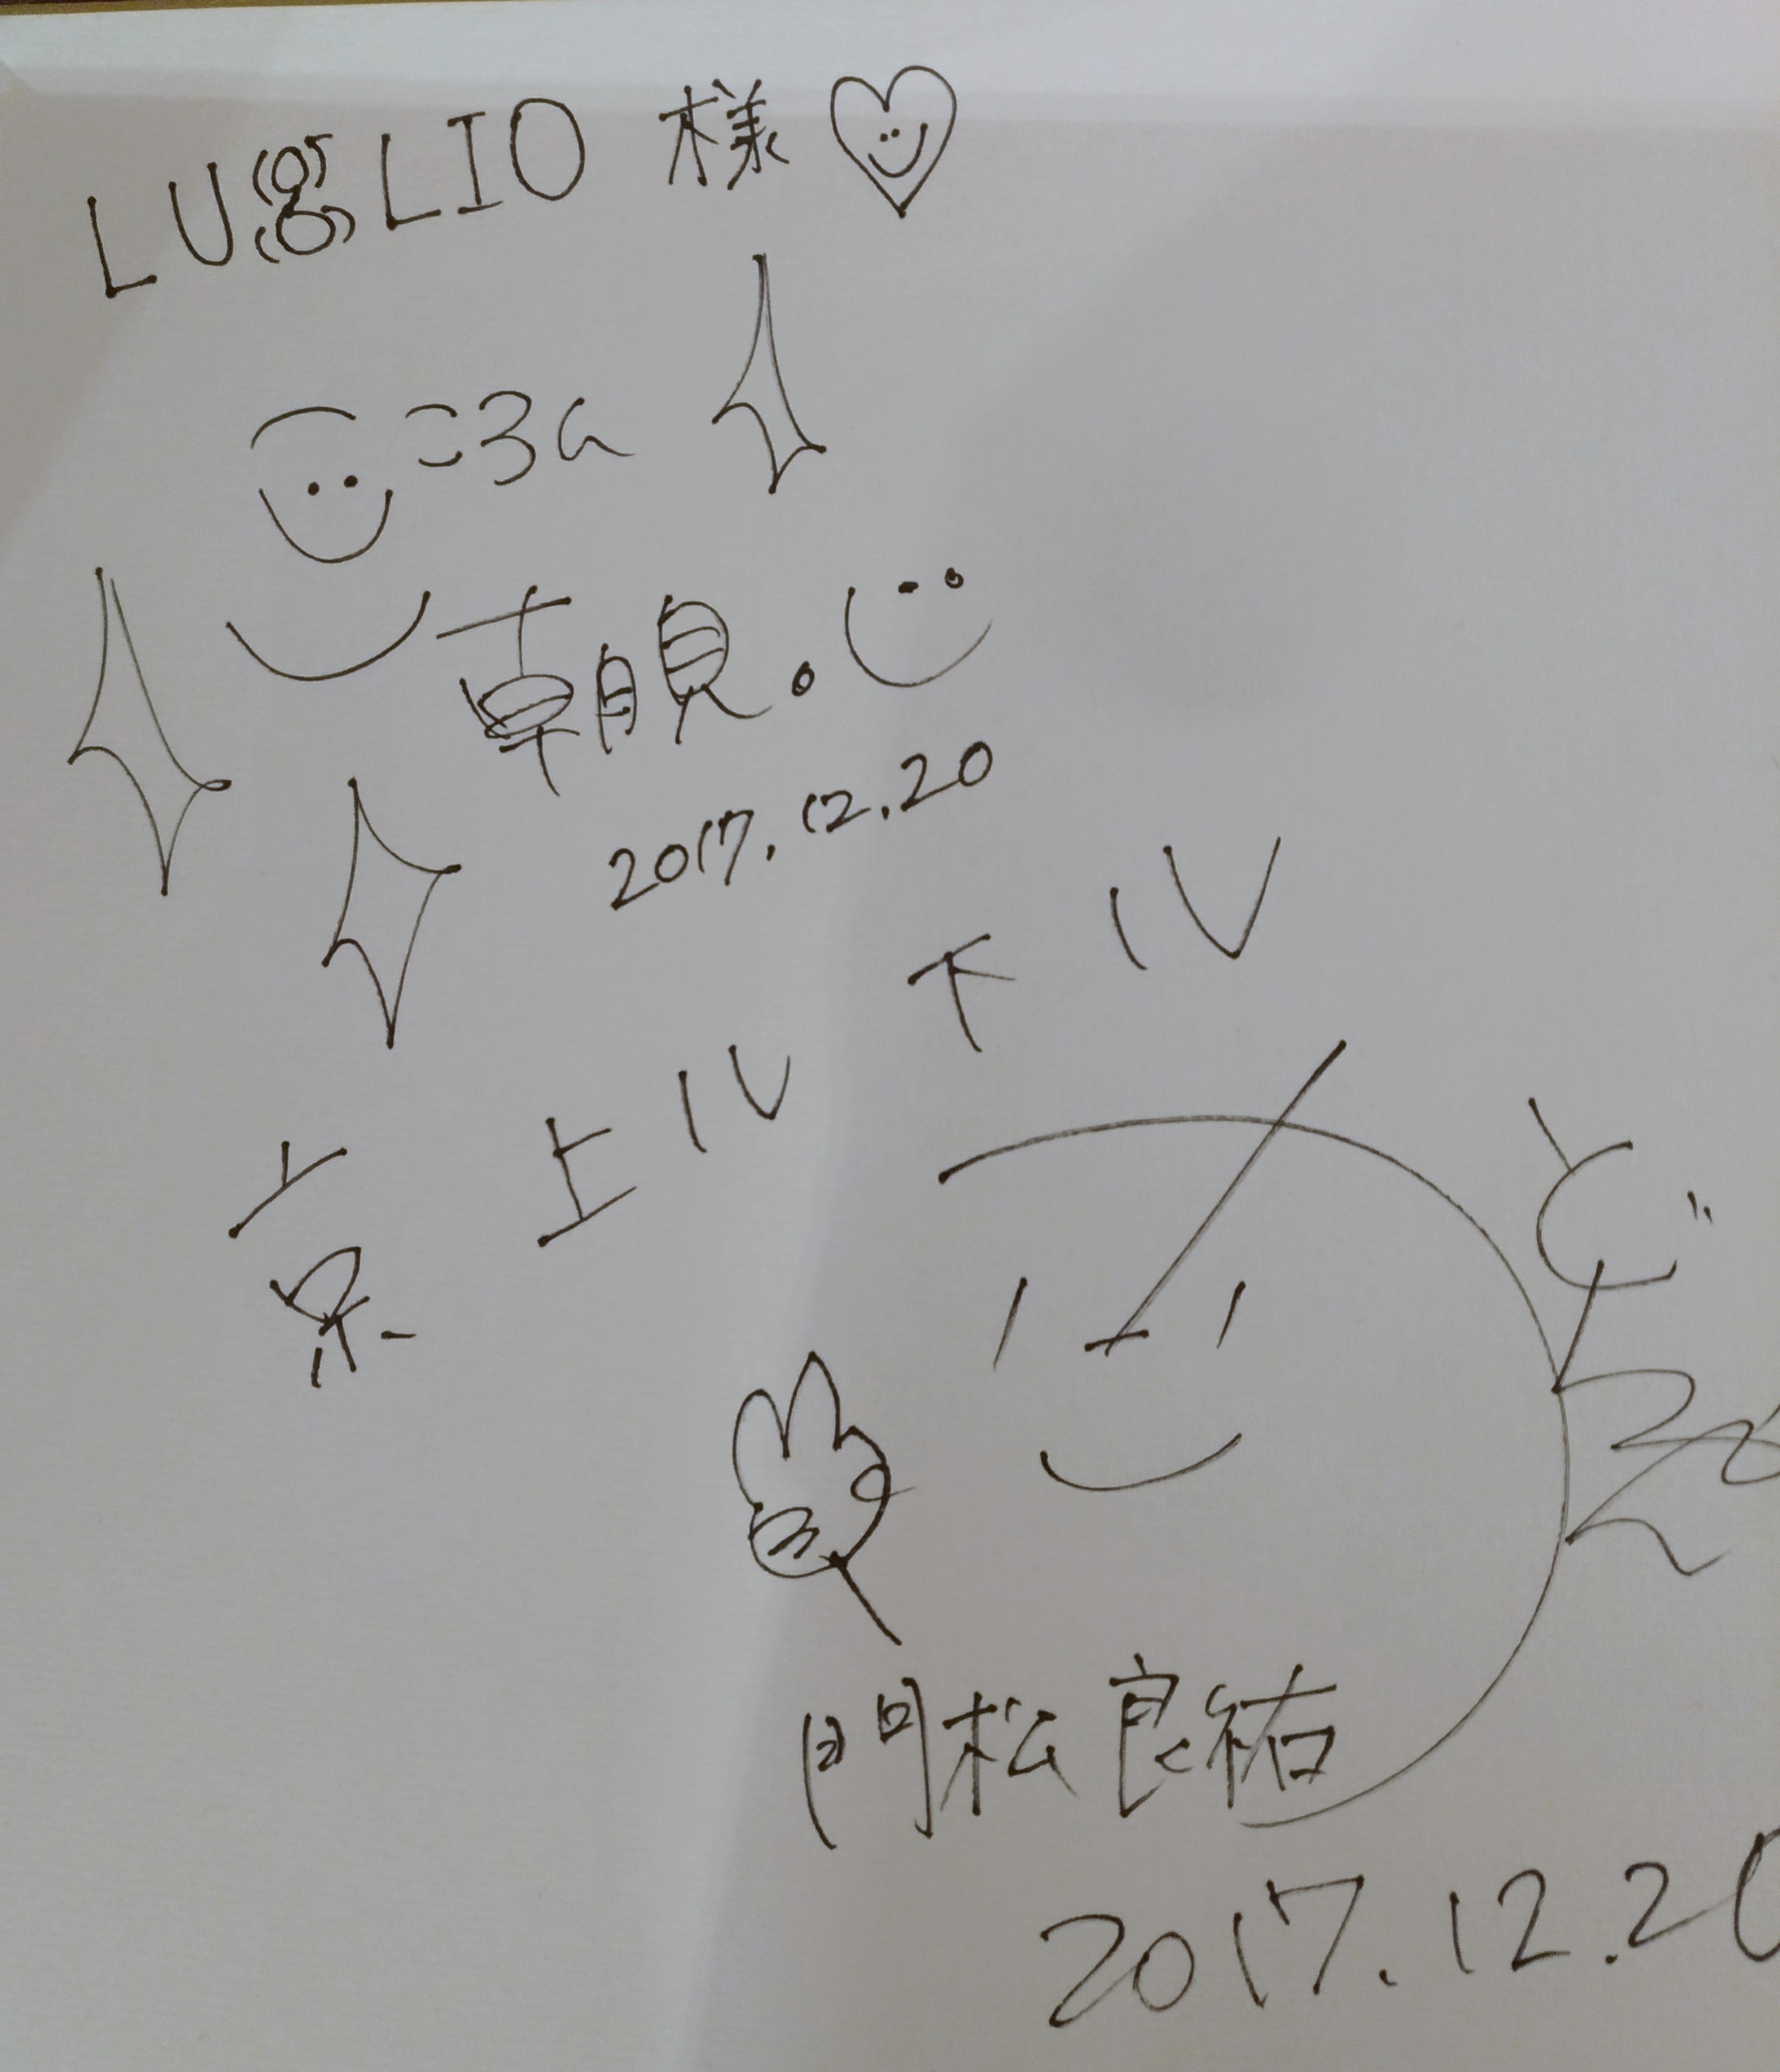 LUgLIO 様
朝貝。
2017.12.20
京 上ル 下ル
門松良祐
2017.12.20